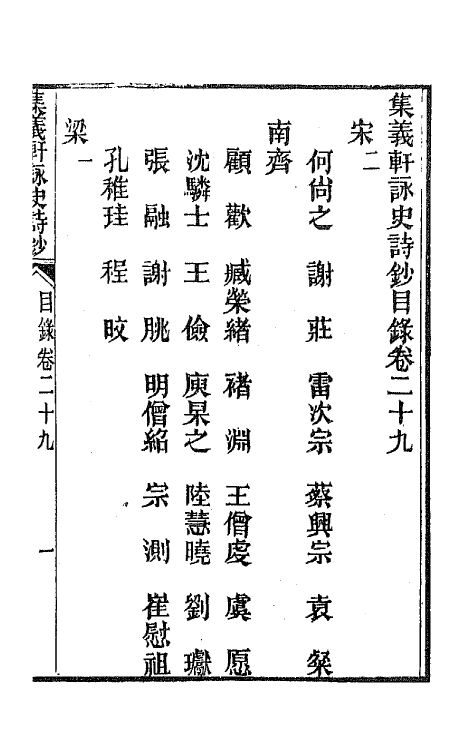 集義軒詠史詩鈔目錄卷二十九
宋二
何尙之 謝莊 雷次宗 蔡興宗 袁粲
南齊
顧歡 臧榮緒 褚淵 王僧虔 虞愿
沈驎士 王儉 庾杲之 陸慧曉 劉瓛
張融 謝朓 明僧紹 宗測 崔慰祖
孔稚珪 程晈
梁一
集義軒詠史詩鈔 目錄卷二十九 一